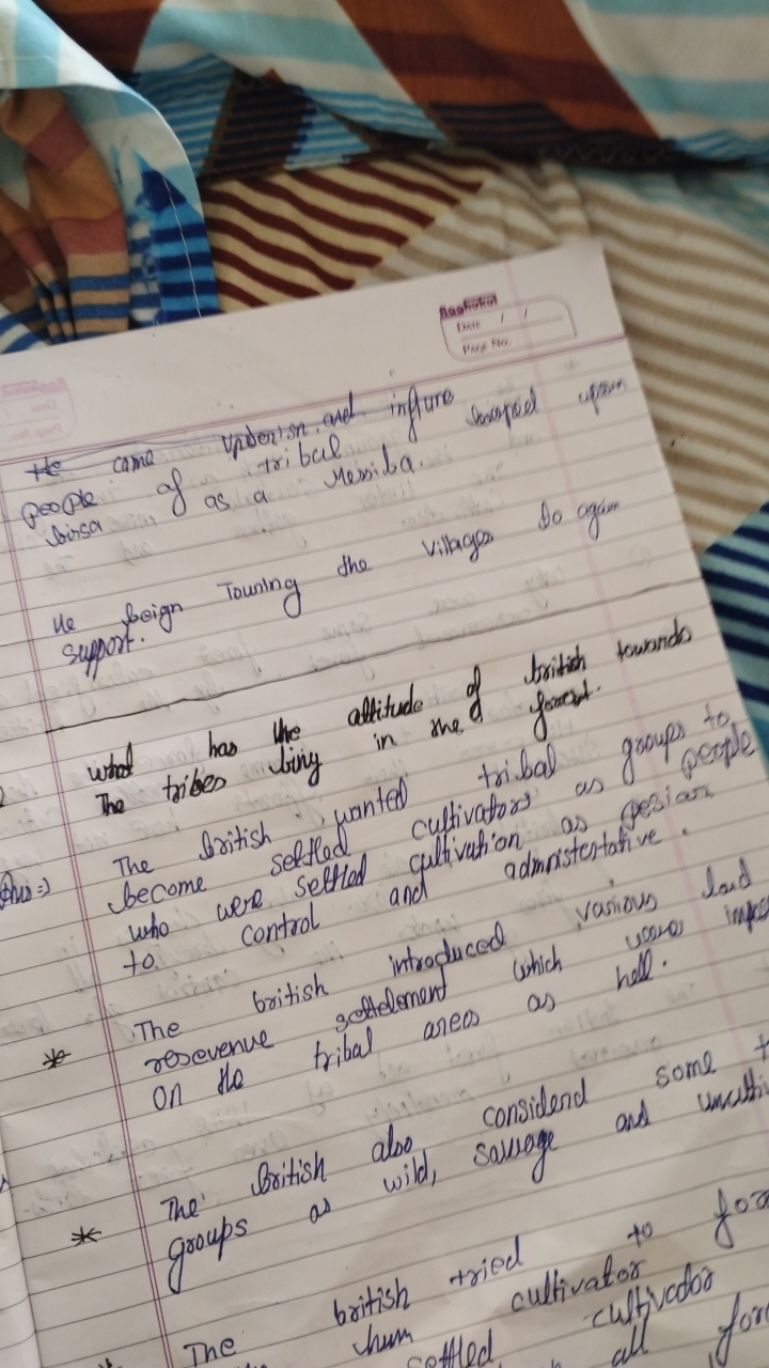 Date / /
Page No.
He came and infture
people of tribal upon
birsa as a Messiba.
He beign Touning the villages Do again
support.
what has the attitude of british towards
The tribes living in the forest.
Ans=)
The british wanted tribal groups to
become settled cultivators as people
who were settled cultivation as
to control and
The british introduced various land
resevenue settelement which
on the tribal areas as hell.
The british also considend some
groups as wild, sawage and
The british tried to
cultivator
settled cultivador
all